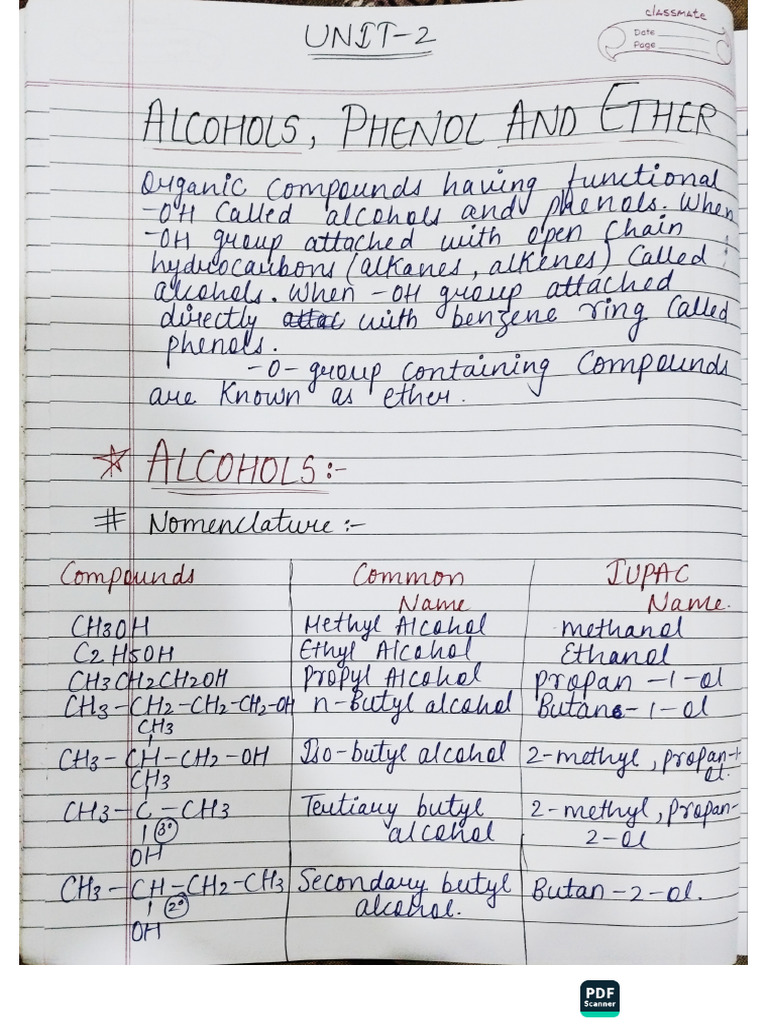 classmate
Date
Page
UNIT-2
ALCOHOLS, PHENOL AND ETHER
Organic compounds having functional
-OH called alcohols and phenols. When
-OH group attached with open chain
hydrocarbons (alkanes, alkenes) called
alcohols. When -OH group attached
directly attac with benzene ring called
phenols.
-O- group containing compounds
are known as ether.
* ALCOHOLS:-
# Nomenclature:-
Compounds Common Name IUPAC Name.
CH3OH Methyl Alcohol methanol
C2H5OH Ethyl Alcohol Ethanol
CH3CH2CH2OH Propyl Alcohol propan-1-ol
CH3-CH2-CH2-CH2-OH n-Butyl alcohol Butane-1-ol
CH3
CH3-CH-CH2-OH Iso-butyl alcohol 2-methyl, propan-1-ol.
CH3
CH3-C-CH3 Tertiary butyl alcohol 2-methyl, propan-2-ol
3°
OH
CH3-CH-CH2-CH3 Secondary butyl alcohol. Butan-2-ol.
2°
OH
PDF
Scanner